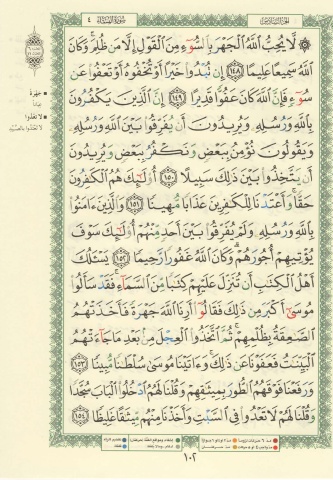 الجزء السادس
سورة النساء ٤
۞ لَّا يُحِبُّ ٱللَّهُ ٱلْجَهْرَ بِٱلسُّوٓءِ مِنَ ٱلْقَوْلِ إِلَّا مَن ظُلِمَ ۚ وَكَانَ
ٱللَّهُ سَمِيعًا عَلِيمًا ١٤٨ إِن تُبْدُوا۟ خَيْرًا أَوْ تُخْفُوهُ أَوْ تَعْفُوا۟ عَن
سُوٓءٍ فَإِنَّ ٱللَّهَ كَانَ عَفُوًّا قَدِيرًا ١٤٩ إِنَّ ٱلَّذِينَ يَكْفُرُونَ
بِٱللَّهِ وَرُسُلِهِۦ وَيُرِيدُونَ أَن يُفَرِّقُوا۟ بَيْنَ ٱللَّهِ وَرُسُلِهِۦ
وَيَقُولُونَ نُؤْمِنُ بِبَعْضٍ وَنَكْفُرُ بِبَعْضٍ وَيُرِيدُونَ
أَن يَتَّخِذُوا۟ بَيْنَ ذَٰلِكَ سَبِيلًا ١٥٠ أُو۟لَٰٓئِكَ هُمُ ٱلْكَٰفِرُونَ
حَقًّا ۚ وَأَعْتَدْنَا لِلْكَٰفِرِينَ عَذَابًا مُّهِينًا ١٥١ وَٱلَّذِينَ ءَامَنُوا۟
بِٱللَّهِ وَرُسُلِهِۦ وَلَمْ يُفَرِّقُوا۟ بَيْنَ أَحَدٍ مِّنْهُمْ أُو۟لَٰٓئِكَ سَوْفَ
يُؤْتِيهِمْ أُجُورَهُمْ ۗ وَكَانَ ٱللَّهُ غَفُورًا رَّحِيمًا ١٥٢ يَسْـَٔلُكَ
أَهْلُ ٱلْكِتَٰبِ أَن تُنَزِّلَ عَلَيْهِمْ كِتَٰبًا مِّنَ ٱلسَّمَآءِ ۚ فَقَدْ سَأَلُوا۟
مُوسَىٰٓ أَكْبَرَ مِن ذَٰلِكَ فَقَالُوٓا۟ أَرِنَا ٱللَّهَ جَهْرَةً فَأَخَذَتْهُمُ
ٱلصَّٰعِقَةُ بِظُلْمِهِمْ ۚ ثُمَّ ٱتَّخَذُوا۟ ٱلْعِجْلَ مِنۢ بَعْدِ مَا جَآءَتْهُمُ
ٱلْبَيِّنَٰتُ فَعَفَوْنَا عَن ذَٰلِكَ ۚ وَءَاتَيْنَا مُوسَىٰ سُلْطَٰنًا مُّبِينًا ١٥٣
وَرَفَعْنَا فَوْقَهُمُ ٱلطُّورَ بِمِيثَٰقِهِمْ وَقُلْنَا لَهُمُ ٱدْخُلُوا۟ ٱلْبَابَ سُجَّدًا
وَقُلْنَا لَهُمْ لَا تَعْدُوا۟ فِى ٱلسَّبْتِ وَأَخَذْنَا مِنْهُم مِّيثَٰقًا غَلِيظًا ١٥٤
جهرة
لا تعدوا
١٠٢